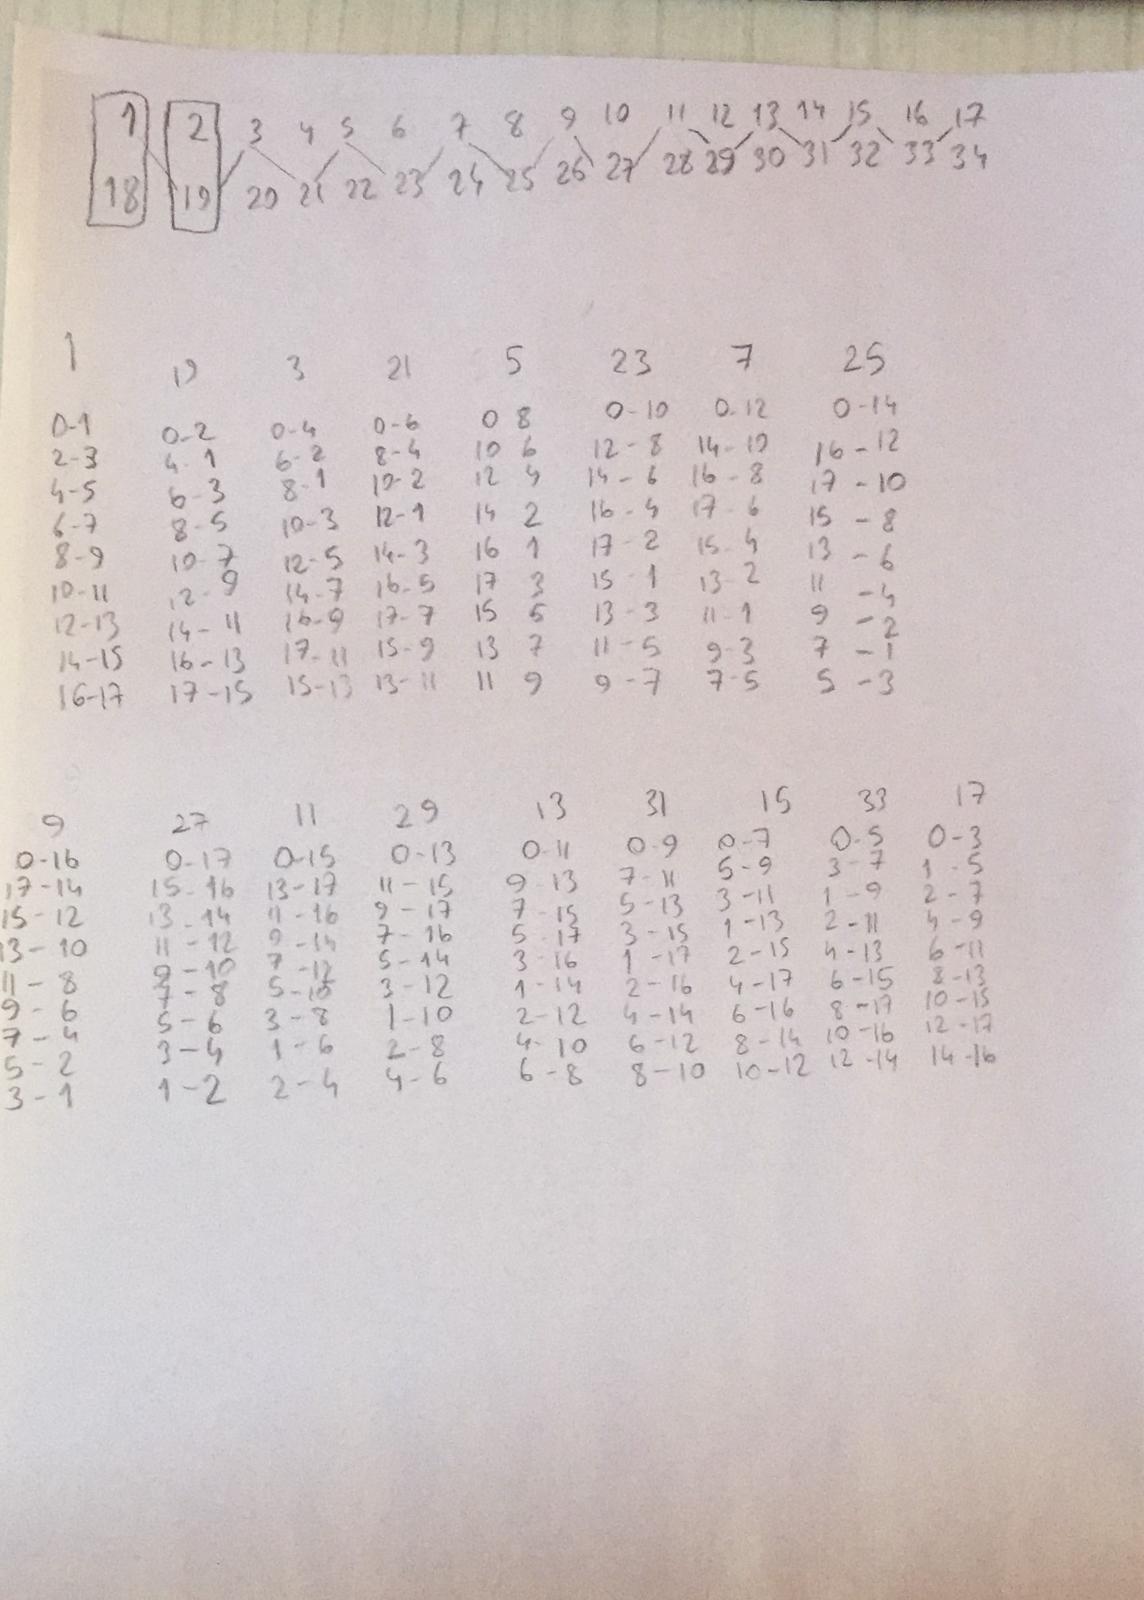 1 2 3 4 5 6 7 8 9 10 11 12 13 14 15 16 17
18 19 20 21 22 23 24 25 26 27 28 29 30 31 32 33 34
1 19 3 21 5 23 7 25
0-1 0-2 0-4 0-6 0 8 0-10 0-12 0-14
2-3 4-1 6-2 8-4 10 6 12-8 14-10 16-12
4-5 6-3 8-1 10-2 12 4 14-6 16-8 17-10
6-7 8-5 10-3 12-1 14 2 16-4 17-6 15-8
8-9 10-7 12-5 14-3 16 1 17-2 15-4 13-6
10-11 12-9 14-7 16-5 17 3 15-1 13-2 11-4
12-13 14-11 16-9 17-7 15 5 13-3 11-1 9-2
14-15 16-13 17-11 15-9 13 7 11-5 9-3 7-1
16-17 17-15 15-13 13-11 11 9 9-7 7-5 5-3
9 27 11 29 13 31 15 33 17
0-16 0-17 0-15 0-13 0-11 0-9 0-7 0-5 0-3
17-14 15-16 13-17 11-15 9-13 7-11 5-9 3-7 1-5
15-12 13-14 11-16 9-17 7-15 5-13 3-11 1-9 2-7
13-10 11-12 9-14 7-16 5-17 3-15 1-13 2-11 4-9
11-8 9-10 7-12 5-14 3-16 1-17 2-15 4-13 6-11
9-6 7-8 5-10 3-12 1-14 2-16 4-17 6-15 8-13
7-4 5-6 3-8 1-10 2-12 4-14 6-16 8-17 10-15
5-2 3-4 1-6 2-8 4-10 6-12 8-14 10-16 12-17
3-1 1-2 2-4 4-6 6-8 8-10 10-12 12-14 14-16